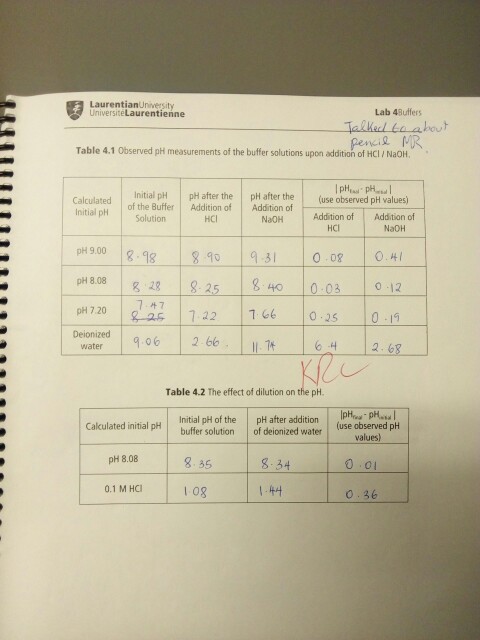 LaurentianUniversity
UniversitéLaurentienne
Lab 4Buffers
Talked to about
pencil MR.
Table 4.1 Observed pH measurements of the buffer solutions upon addition of HCl / NaOH.
Calculated Initial pH | Initial pH of the Buffer Solution | pH after the Addition of HCl | pH after the Addition of NaOH | | pHfinal - pHinitial | (use observed pH values)
Addition of HCl | Addition of NaOH
pH 9.00 8.98 8.90 9.31 0.08 0.41
pH 8.08 8.28 8.25 8.40 0.03 0.12
7.47
pH 7.20 8.25 7.22 7.66 0.25 0.19
Deionized water 9.06 2.66 11.74 6.4 2.68
KRL
Table 4.2 The effect of dilution on the pH.
Calculated initial pH | Initial pH of the buffer solution | pH after addition of deionized water | |pHfinal - pHinitial | (use observed pH values)
pH 8.08 8.35 8.34 0.01
0.1 M HCl 1.08 1.44 0.36